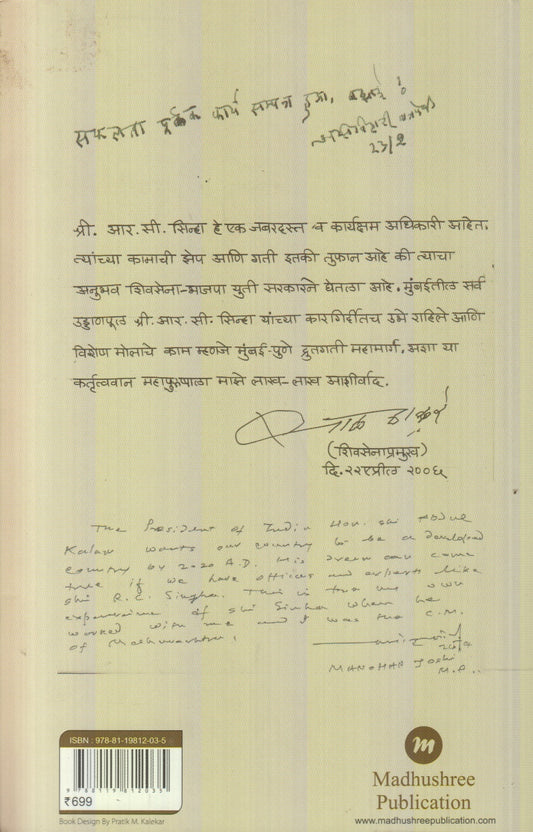 सफलता पूर्वक कार्य सम्पन्न हुआ, बधाई !
अटल बिहारी वाजपेयी
23/2
श्री. आर. सी. सिन्हा हे एक जबरदस्त व कार्यक्षम अधिकारी आहेत.
त्यांच्या कामाची झेप आणि गती इतकी तुफान आहे की त्याचा
अनुभव शिवसेना-भाजपा युती सरकारने घेतला आहे. मुंबईतील सर्व
उड्डाणपूल श्री. आर. सी. सिन्हा यांच्या कारगिर्दीतच उभे राहिले आणि
विशेष मोलाचे काम म्हणजे मुंबई-पुणे द्रुतगती महामार्ग. अशा या
कर्तृत्ववान महापुरुषाला माझे लाख-लाख आशीर्वाद.
बाळ ठाकरे
(शिवसेनाप्रमुख)
दि. २२ एप्रील २००६
The President of India Hon. shi Abdul
Kalam wants our country to be a developed
country by 2020 A.D. His dream can come
true if we have officers and experts like
shi R.C. Singha. This is true my own
experience of shi Sinha when he
worked with me and I was the C.M.
of Maharashtra.
MANOHAR JOSHI
M.P.
ISBN : 978-81-19812-03-5
9 788119 812035
₹699
Book Design By Pratik M. Kalekar
m
Madhushree
Publication
www.madhushreepublication.com